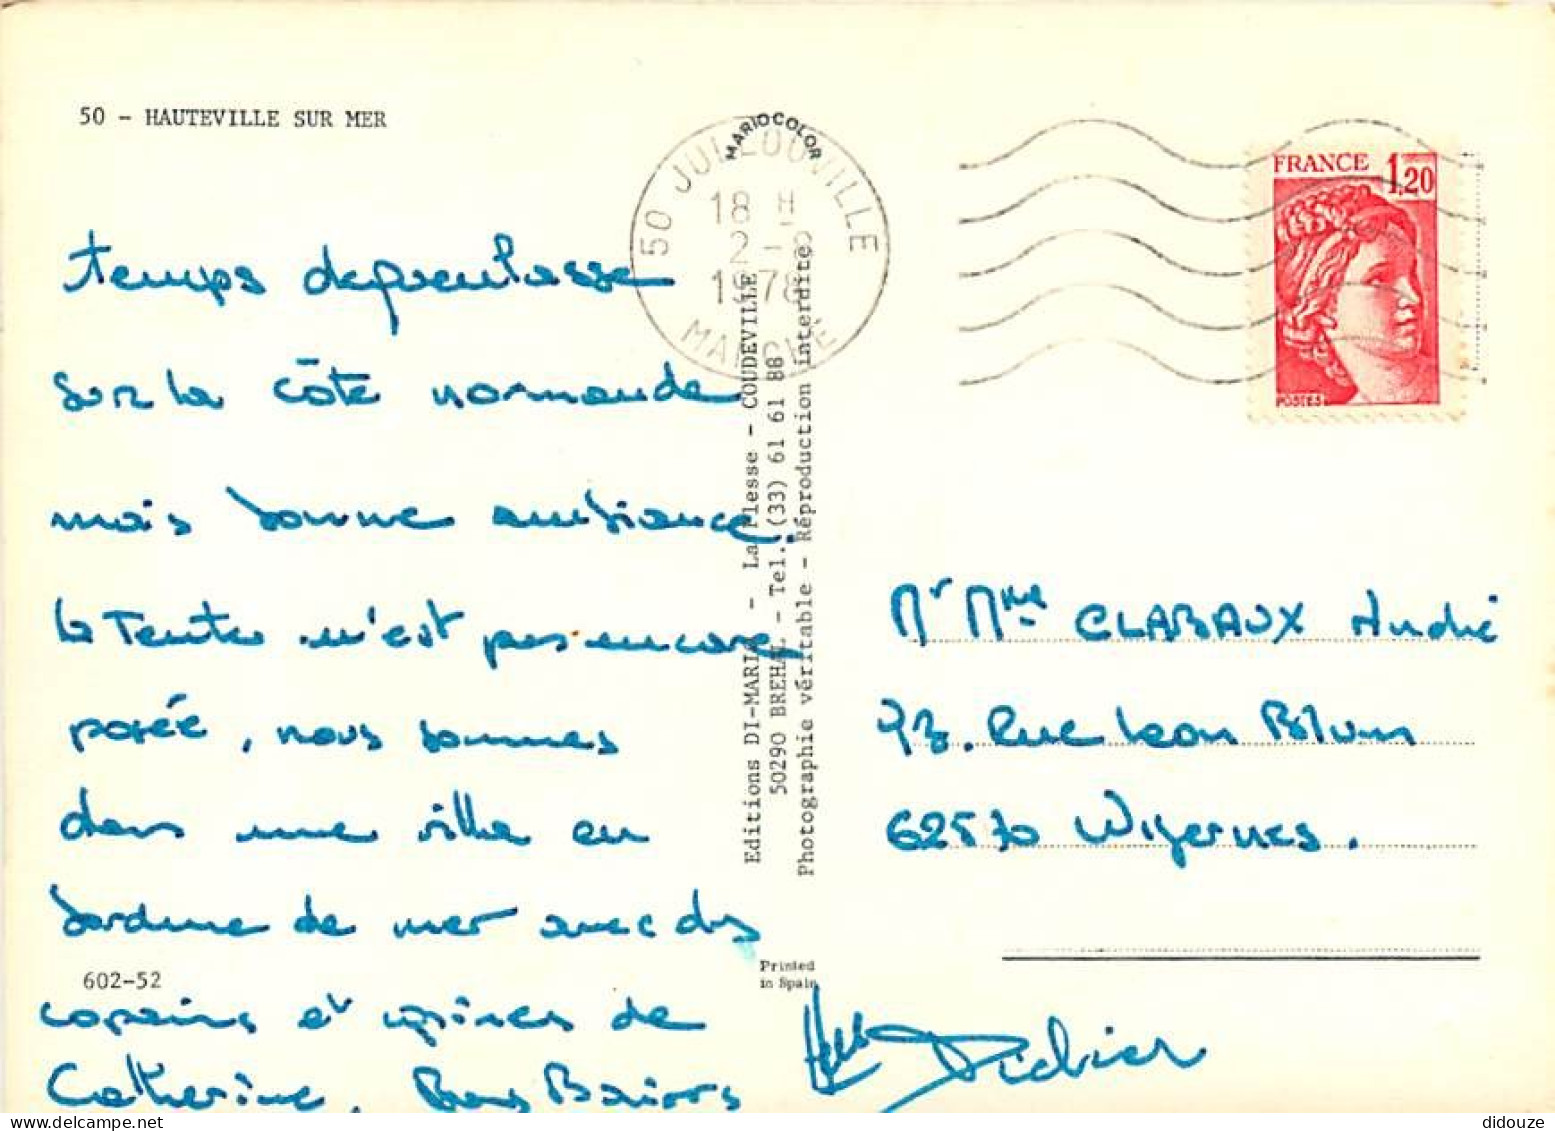 50 - HAUTEVILLE SUR MER
MARIOCOLOR
50 JULLOUVILLE
18 H
2 - 8
1978
MANCHE
FRANCE 1,20
POSTES
temps degueulasse
sur la côte normande
mais bonne ambiance.
la Tente n'est pas encore
posée, nous sommes
dans une ville en
bordure de mer avec des
copains et copines de
Catherine. Bons Baisers
Didier
Editions DI-MARIA - La Plesse - COUDEVILLE
50290 BREHAL - Tel. (33) 61 61 88
Photographie véritable - Réproduction interdite
Mr Mme CLABAUX André
93. Rue Leon Blum
62570 Wizernes.
602-52
Printed
in Spain
delcampe.net
didouze